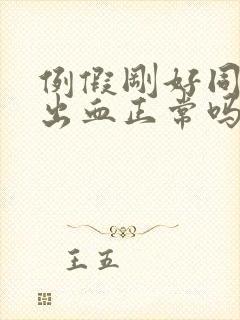 例假刚好同
出血正常吗
王五